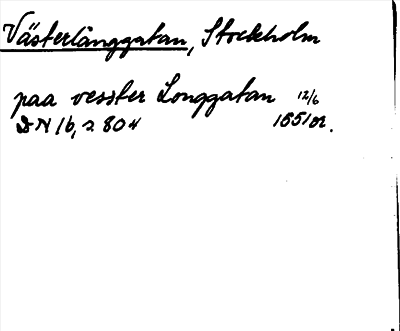 Västerlånggatan, Stockholm
paa vesster Longgatan 12/6
DN 16, s 804 1551 or.